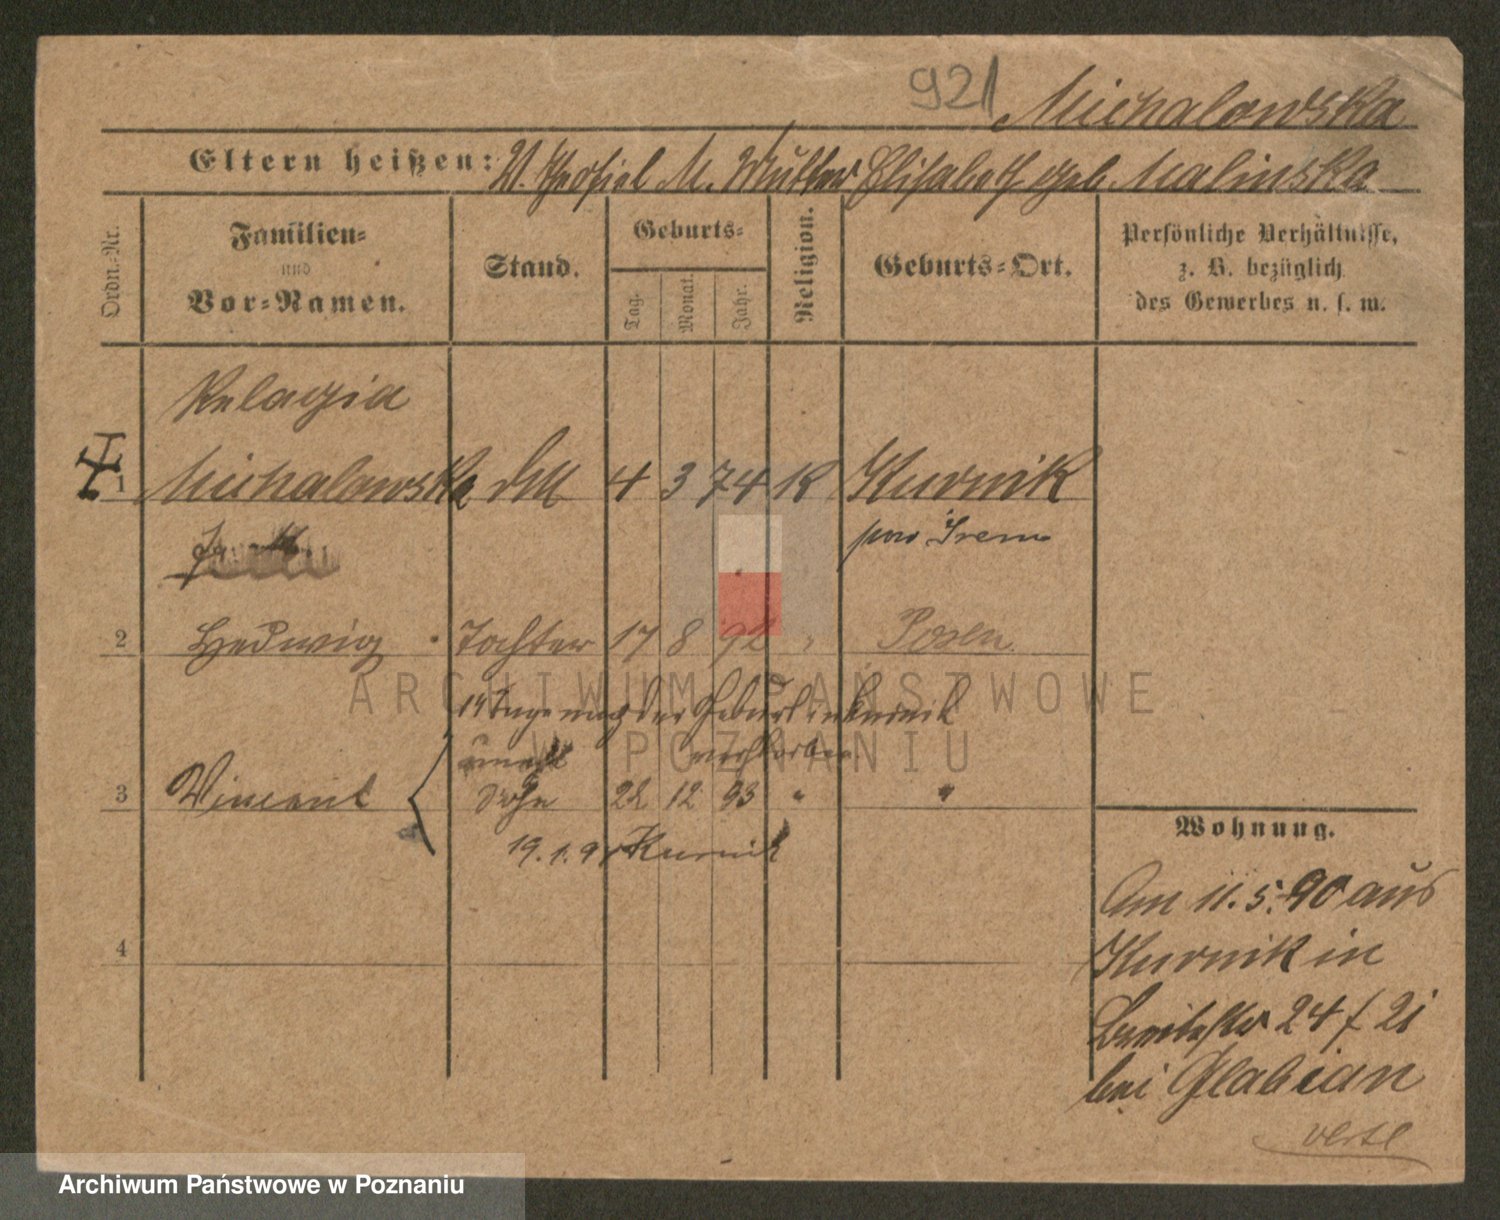 921 Michalowska
Eltern heißen: V. Theofiel M. Mutter Elisabeth geb. Malinska
Ordn.-Nr.
Familien-
und
Vor-Namen.
Stand.
Geburts-
Tag.
Monat.
Jahr.
Religion.
Geburts-Ort.
Persönliche Verhältnisse,
z. B. bezüglich
des Gewerbes u. s. w.
Pelagia
1 Michalowska 4 3 74 K Kurnik
Srem
2 Hedwig Tochter 17 8 92 " Posen
14 Tage nach der Geburt in Kurnik
verstorben
3 Vincent Sohn 22 12 93 " "
19.1.94 Kurnik
4
Wohnung.
Am 11.5.90 aus
Kurnik in
Breitestr 24 f 21
bei Glabian
verte
ARCHIWUM PAŃSTWOWE
W POZNANIU
Archiwum Państwowe w Poznaniu